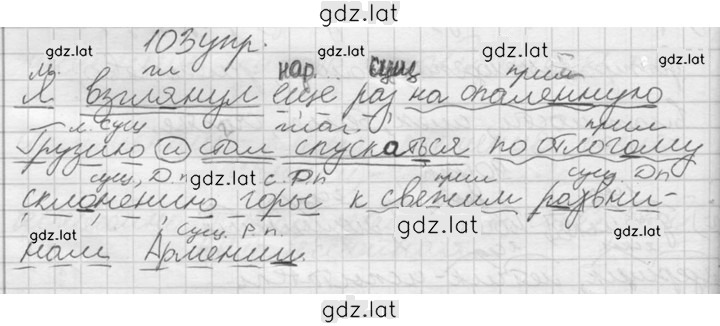 gdz.lat
103 упр.
gdz.lat gdz.lat
гл нар. сущ прил
Я взглянул еще раз на опаленную
сущ глаг. прил
Грузию и стал спускаться по отлогому
сущ, Д.п gdz.lat с. Р.п прил сущ Дп
склонению горы к свежим равни-
gdz.lat сущ. Р.п. gdz.lat
нам Армении.
gdz.lat